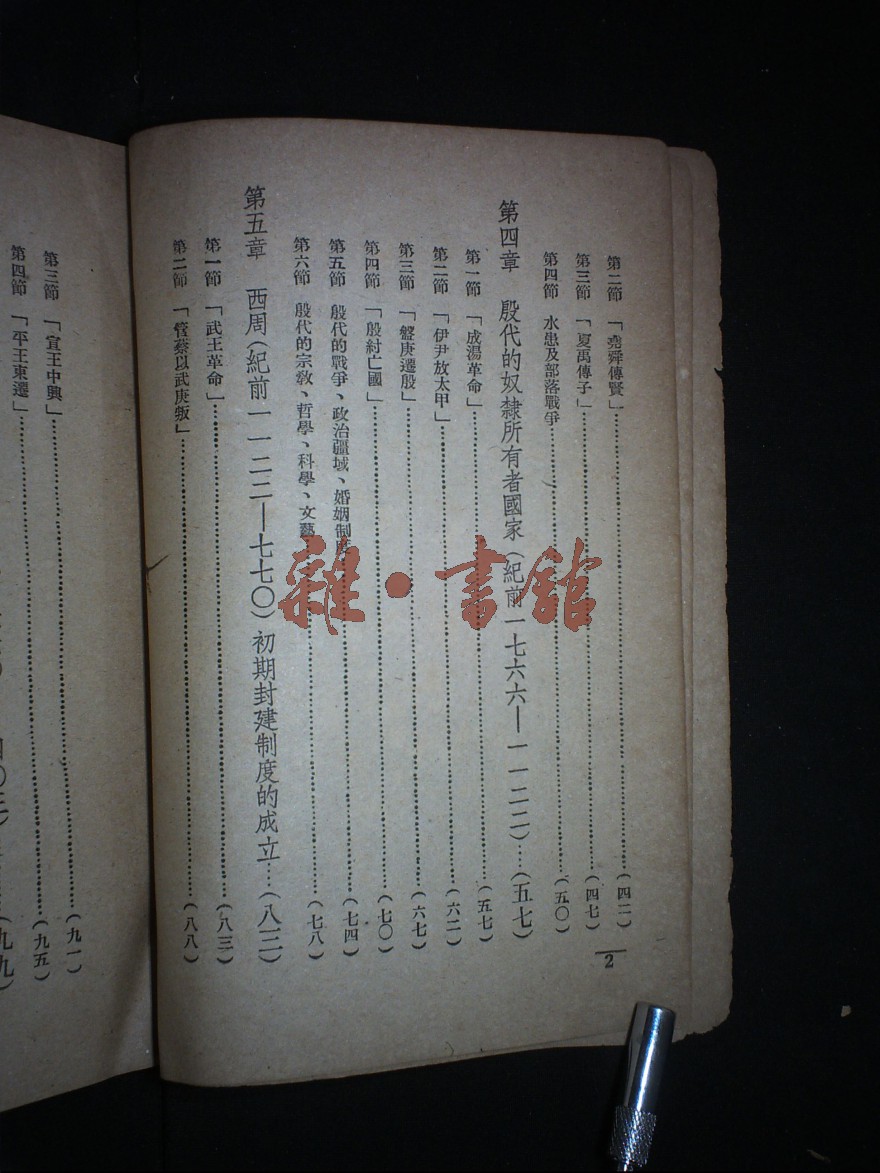 第二節 「堯舜傳賢」…………(四二)
第三節 「夏禹傳子」…………(四七)
第四節 水患及部落戰爭…………(五〇)
第四章 殷代的奴隸所有者國家(紀前一七六六—一一二二)…(五七)
第一節 「成湯革命」…………(五七)
第二節 「伊尹放太甲」…………(六二)
第三節 「盤庚遷殷」…………(六七)
第四節 「殷紂亡國」…………(七〇)
第五節 殷代的戰爭、政治疆域、婚姻制度…………(七四)
第六節 殷代的宗教、哲學、科學、文藝…………(七八)
第五章 西周(紀前一一二二—七七〇)初期封建制度的成立…(八三)
第一節 「武王革命」…………(八三)
第二節 「管蔡以武庚叛」…………(八八)
2
第三節 「宣王中興」…………(九一)
第四節 「平王東遷」…………(九五)
四〇三)
(九九)
雜·書館